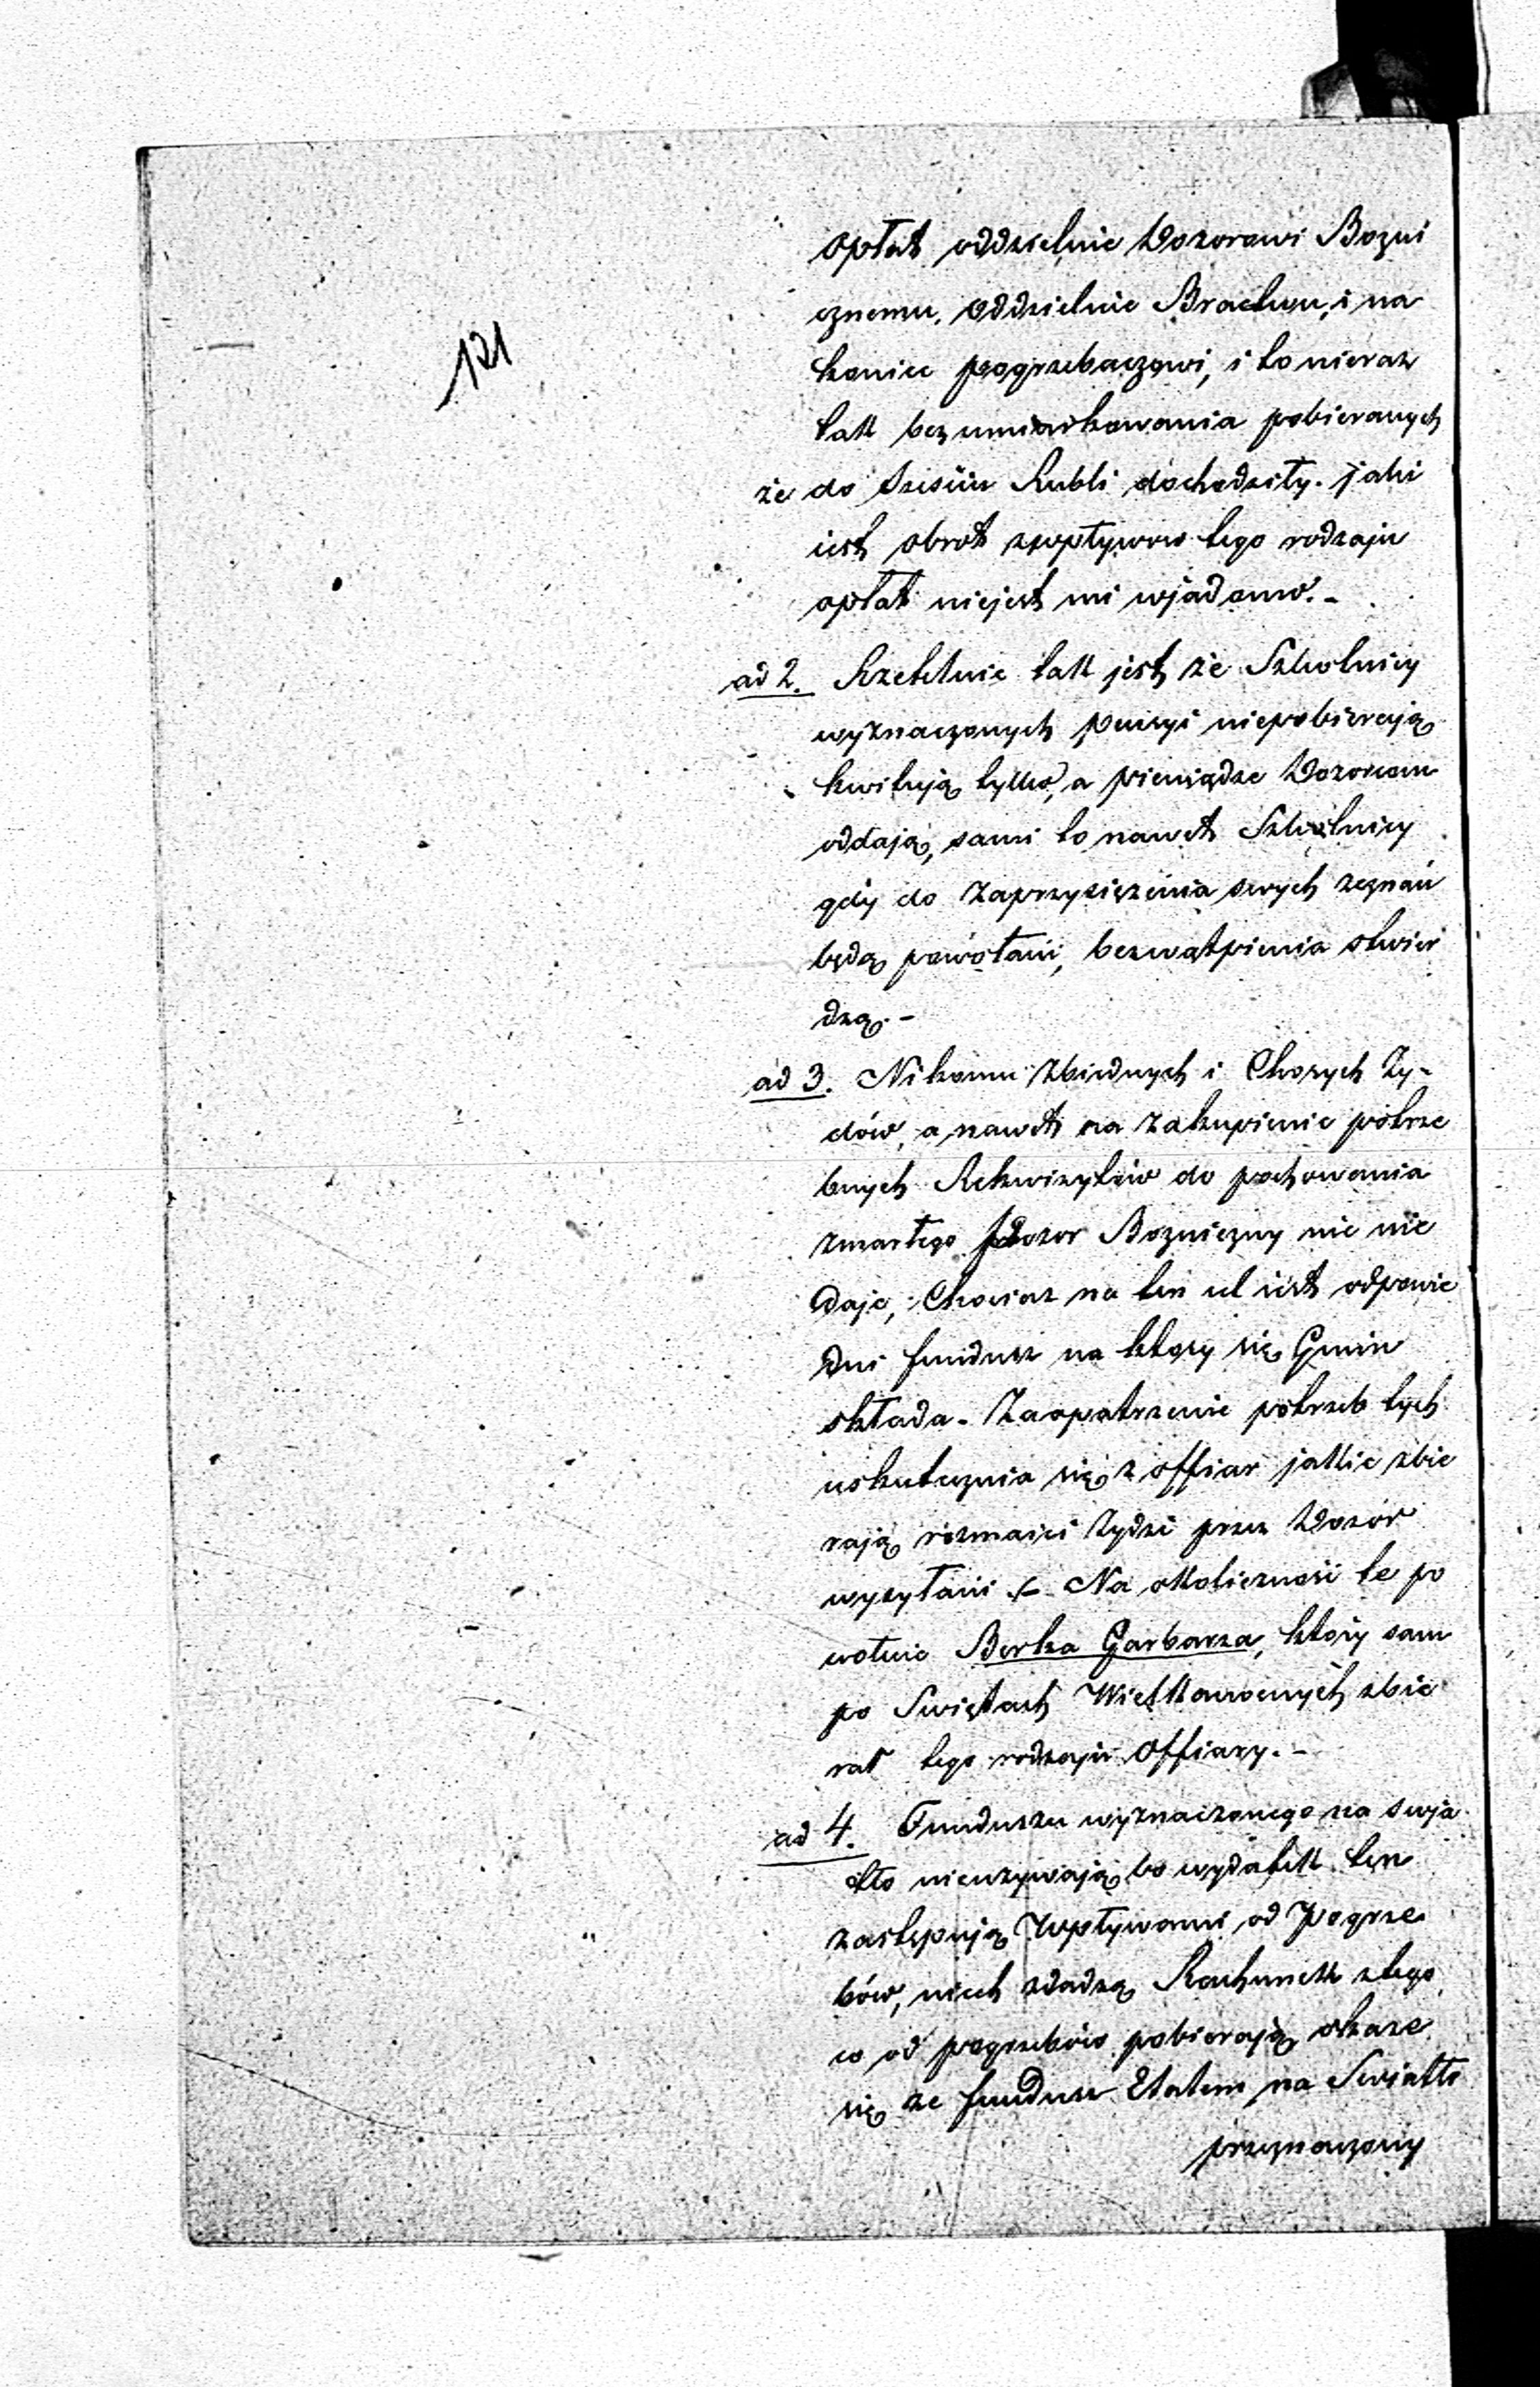 121
opłat oddzielnie Dozorowi Bozni
cznemu, Oddzielnie Bractwu, i na
koniec pogrzebaczowi, i to nieraz
takk bez umiarkowania pobieranych
że do sześciu Rubli dochodziły. jaki
iest obrot zwpływow tego rodzaju
opłat niejest mi wjadomo. -
ad 2. Rzetelnie takk jest że Szkolnicy
wyznaczonych pensyi niepobierają
kwitują tylko, a pieniądze Dozorcom
oddają, sami to nawet Szkolnicy
gdy do zaprzysiężenia swych zeznań
będą powołani, bezwątpienia stwier
dzą. -
ad 3. Nikomu zbiednych i Chorych Ży-
dów, a nawet na zakupienie potrze
bnych Rekwizytów do pochowania
zmarłego Dozor Bozniczny nic nie
daje, Chociaz na ten cel iest odpowie
dni fundusz na ktory się Gmin
składa. Zaopatrzenie potrzeb tych
uskutecznia się z offiar jakkie zbie
rają rózmaici Żydzi przez Dozór
wysyłani. - Na okkoliczność te po
wołuie Berka Garbarza, który sam
po Swiętach Wielkkanocnych zbie
rał tego rodzaju Offiary. -
ad 4. Funduszu wyznaczonego na swja
tło nieuzywają bo wydatekk ten
zastępują Wpływami od Pogrze
bów, niech zdadzą Rachunekk ztego
co od pogrzebów pobierają okaze
się ze fundusz Etatem na Swiatło
przeznaczony